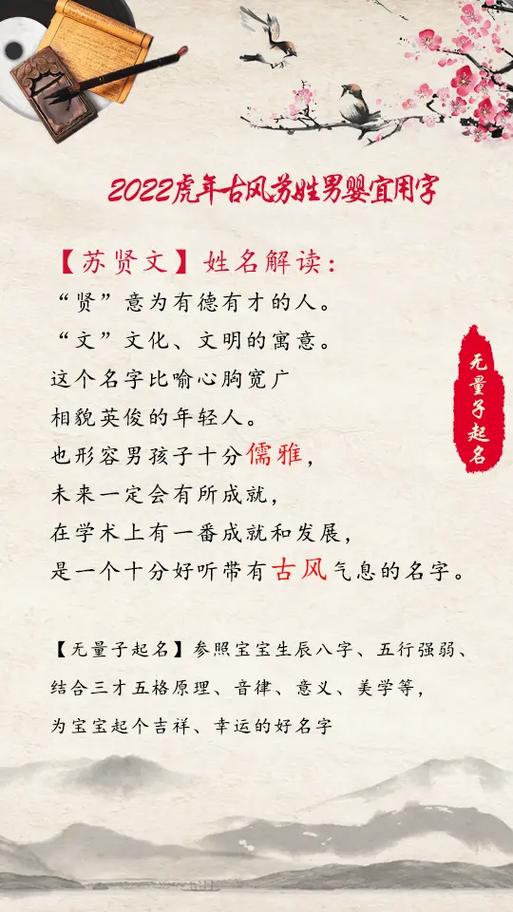 2022虎年古风苏姓男婴宜用字
【苏贤文】姓名解读：
“贤”意为有德有才的人。
“文”文化、文明的寓意。
这个名字比喻心胸宽广
相貌英俊的年轻人。
也形容男孩子十分儒雅，
未来一定会有所成就，
在学术上有一番成就和发展，
是一个十分好听带有古风气息的名字。
无量子起名
【无量子起名】参照宝宝生辰八字、五行强弱、
结合三才五格原理、音律、意义、美学等，
为宝宝起个吉祥、幸运的好名字